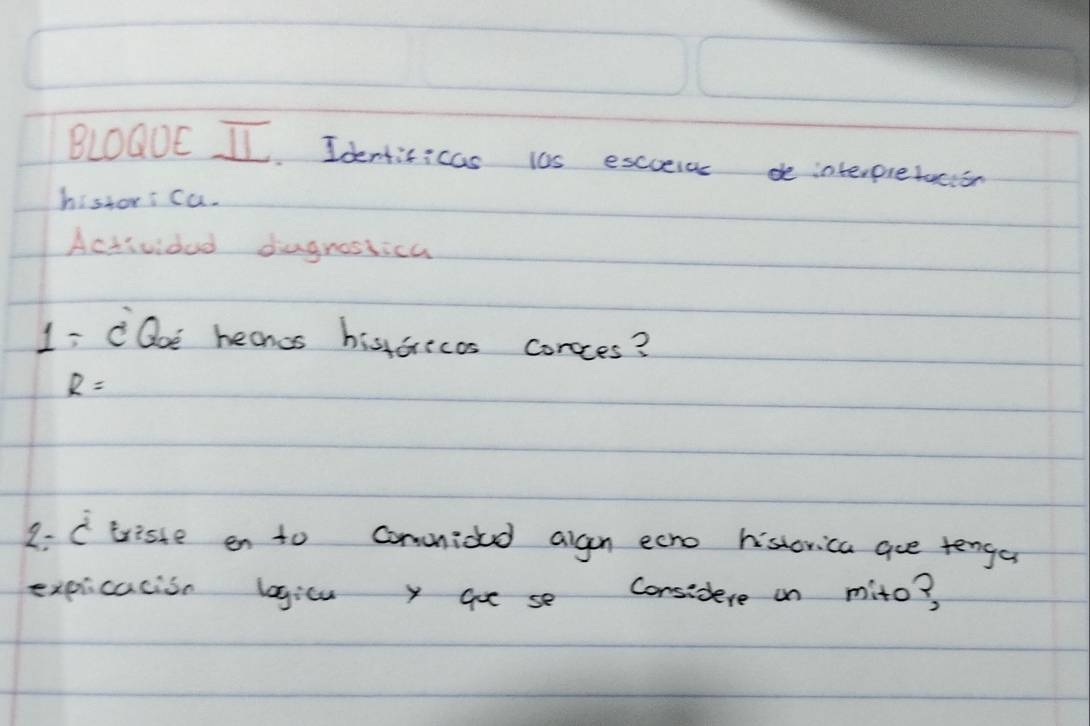 BLOQUE II. Identificas las escuelas de interpretación
historica.
Actividad diagnostica
1- ¿Qué hechos históricos conoces?
R=
2.- ¿Existe en tu comunidad algun echo historica que tenga
explicación logica y que se considere un mito?,